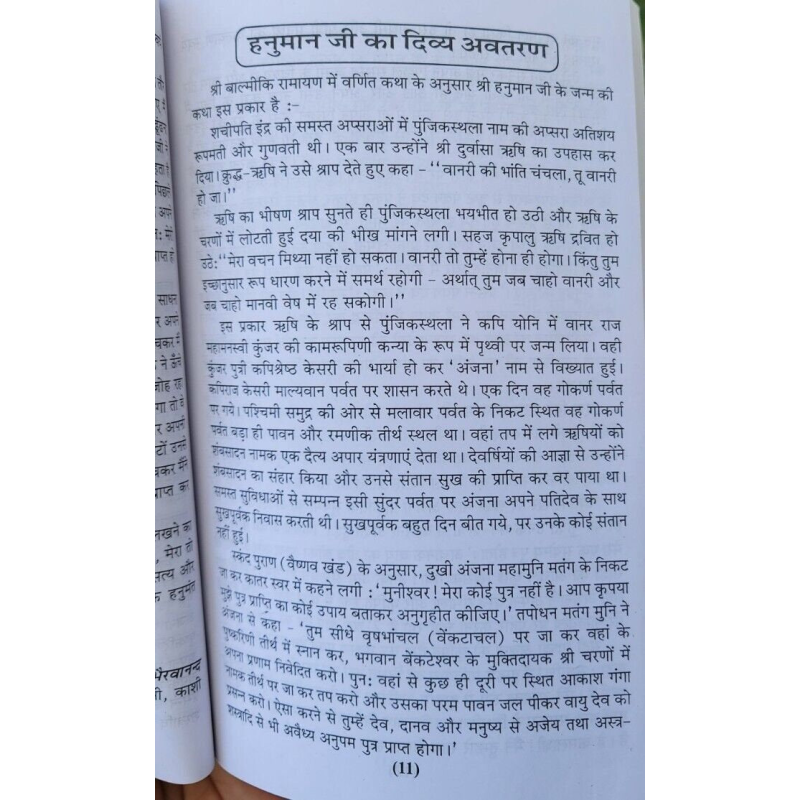 हनुमान जी का दिव्य अवतरण
श्री बाल्मीकि रामायण में वर्णित कथा के अनुसार श्री हनुमान जी के जन्म की
कथा इस प्रकार है :-
शचीपति इंद्र की समस्त अप्सराओं में पुंजिकस्थला नाम की अप्सरा अतिशय
रूपमती और गुणवती थी। एक बार उन्होंने श्री दुर्वासा ऋषि का उपहास कर
दिया। क्रुद्ध-ऋषि ने उसे श्राप देते हुए कहा - ''वानरी की भांति चंचला, तू वानरी
हो जा।''
ऋषि का भीषण श्राप सुनते ही पुंजिकस्थला भयभीत हो उठी और ऋषि के
चरणों में लोटती हुई दया की भीख मांगने लगी। सहज कृपालु ऋषि द्रवित हो
उठे:''मेरा वचन मिथ्या नहीं हो सकता। वानरी तो तुम्हें होना ही होगा। किंतु तुम
इच्छानुसार रूप धारण करने में समर्थ रहोगी - अर्थात् तुम जब चाहो वानरी और
जब चाहो मानवी वेष में रह सकोगी।''
इस प्रकार ऋषि के श्राप से पुंजिकस्थला ने कपि योनि में वानर राज
महामनस्वी कुंजर की कामरूपिणी कन्या के रूप में पृथ्वी पर जन्म लिया। वही
कुंजर पुत्री कपिश्रेष्ठ केसरी की भार्या हो कर 'अंजना' नाम से विख्यात हुई।
कपिराज केसरी माल्यवान पर्वत पर शासन करते थे। एक दिन वह गोकर्ण पर्वत
पर गये। पश्चिमी समुद्र की ओर से मलावार पर्वत के निकट स्थित वह गोकर्ण
पर्वत बड़ा ही पावन और रमणीक तीर्थ स्थल था। वहां तप में लगे ऋषियों को
शंबसादन नामक एक दैत्य अपार यंत्रणाएं देता था। देवर्षियों की आज्ञा से उन्होंने
शंबसादन का संहार किया और उनसे संतान सुख की प्राप्ति कर वर पाया था।
समस्त सुविधाओं से सम्पन्न इसी सुंदर पर्वत पर अंजना अपने पतिदेव के साथ
सुखपूर्वक निवास करती थी। सुखपूर्वक बहुत दिन बीत गये, पर उनके कोई संतान
नहीं हुई।
स्कंद पुराण (वैष्णव खंड) के अनुसार, दुखी अंजना महामुनि मतंग के निकट
जा कर कातर स्वर में कहने लगी :'मुनीश्वर! मेरा कोई पुत्र नहीं है। आप कृपया
मुझे पुत्र प्राप्ति का कोई उपाय बताकर अनुगृहीत कीजिए।' तपोधन मतंग मुनि ने
अंजना से कहा - 'तुम सीधे वृषभांचल (वेंकटाचल) पर जा कर वहां के
पुष्करिणी तीर्थ में स्नान कर, भगवान बेंकटेश्वर के मुक्तिदायक श्री चरणों में
अपना प्रणाम निवेदित करो। पुन: वहां से कुछ ही दूरी पर स्थित आकाश गंगा
नामक तीर्थ पर जा कर तप करो और उसका परम पावन जल पीकर वायु देव को
प्रसन्न करो। ऐसा करने से तुम्हें देव, दानव और मनुष्य से अजेय तथा अस्त्र-
शस्त्रादि से भी अवैध्य अनुपम पुत्र प्राप्त होगा।'
(11)